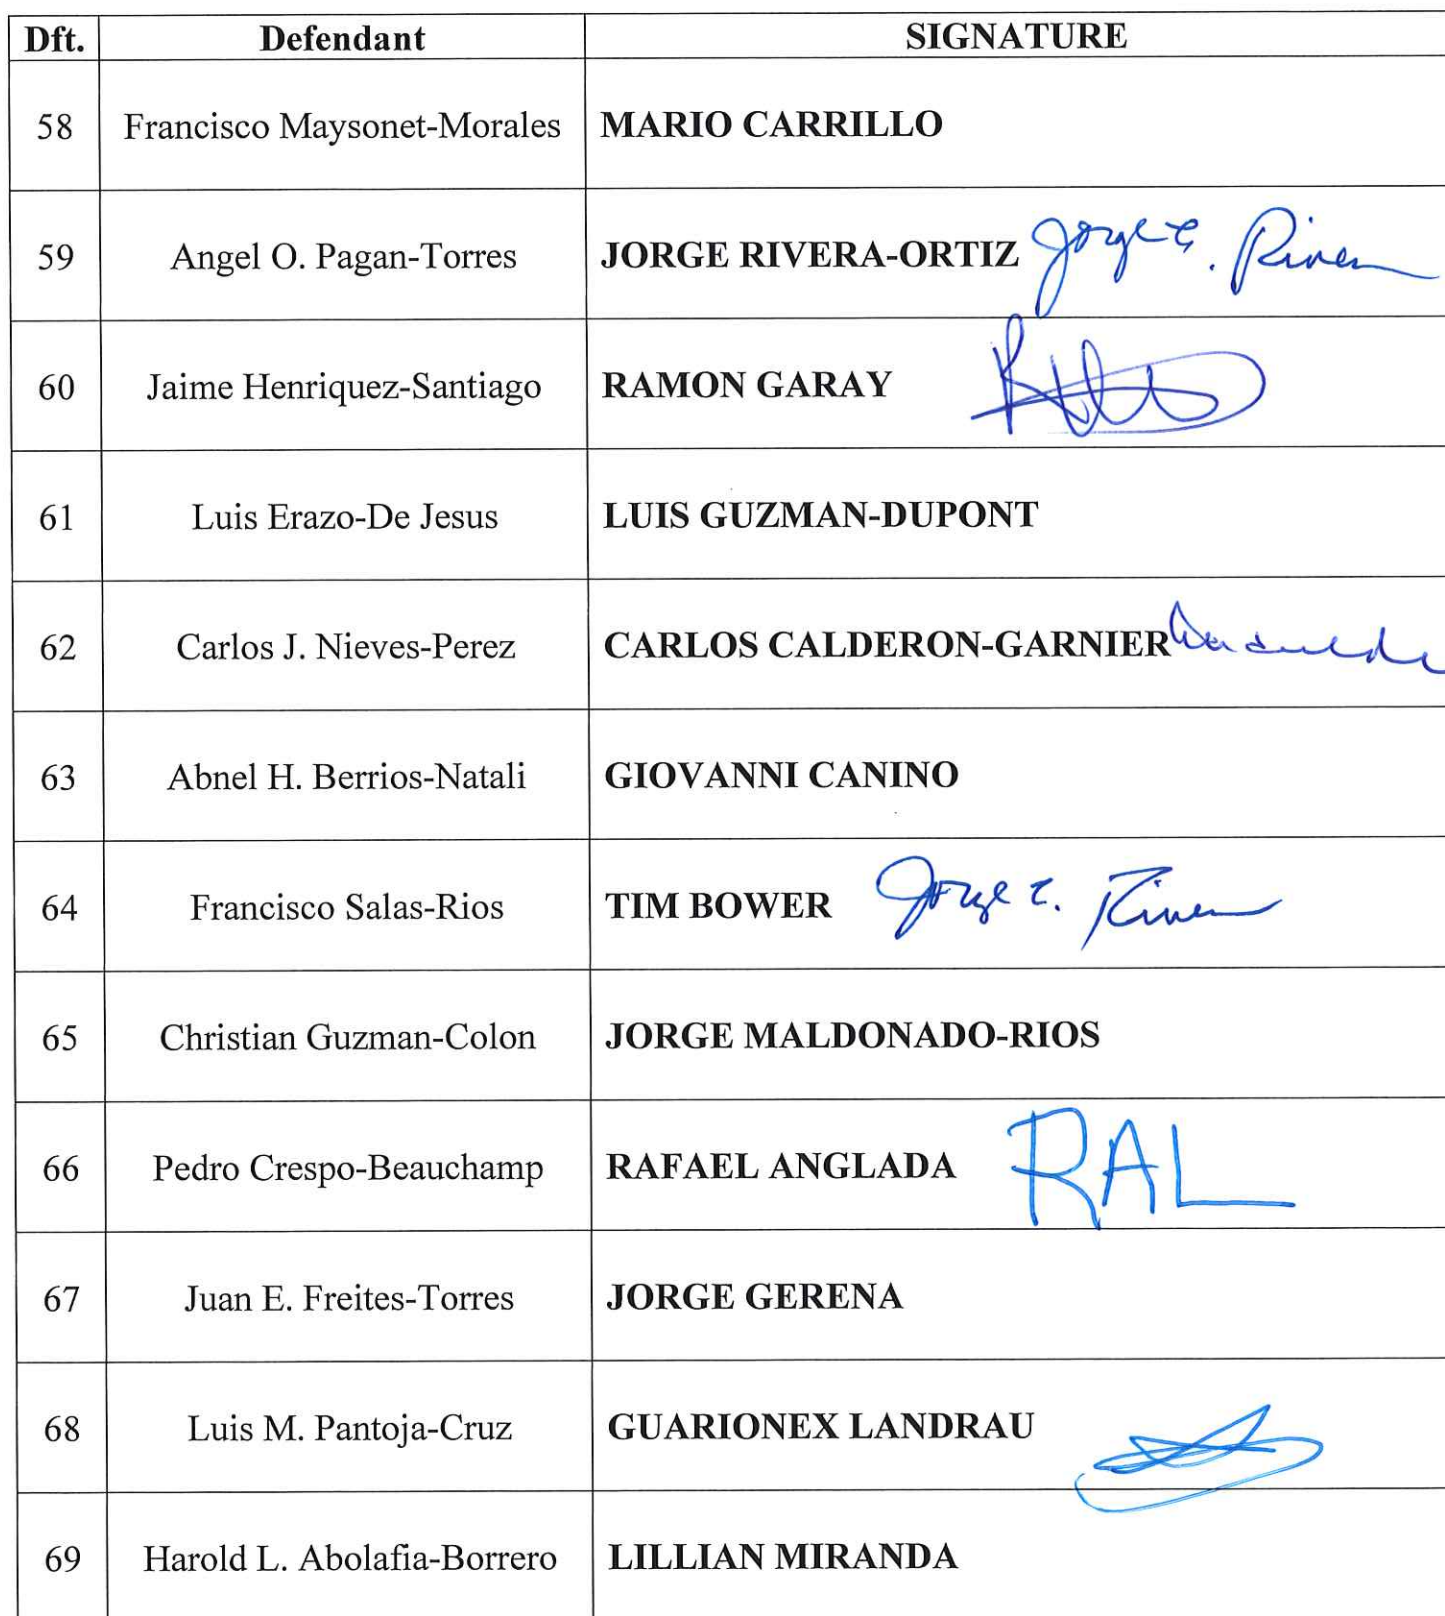 Dft. Defendant SIGNATURE
58 Francisco Maysonet-Morales MARIO CARRILLO
59 Angel O. Pagan-Torres JORGE RIVERA-ORTIZ Jorge E. Rivera
60 Jaime Henriquez-Santiago RAMON GARAY
61 Luis Erazo-De Jesus LUIS GUZMAN-DUPONT
62 Carlos J. Nieves-Perez CARLOS CALDERON-GARNIER
63 Abnel H. Berrios-Natali GIOVANNI CANINO
64 Francisco Salas-Rios TIM BOWER Jorge E. Rivera
65 Christian Guzman-Colon JORGE MALDONADO-RIOS
66 Pedro Crespo-Beauchamp RAFAEL ANGLADA RAL
67 Juan E. Freites-Torres JORGE GERENA
68 Luis M. Pantoja-Cruz GUARIONEX LANDRAU
69 Harold L. Abolafia-Borrero LILLIAN MIRANDA